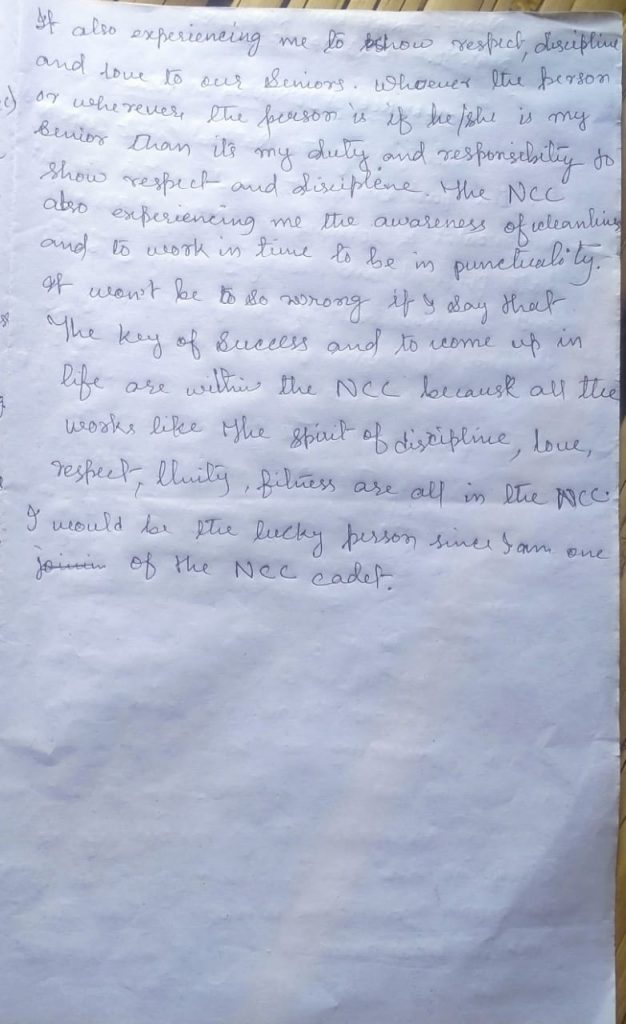 It also experiencing me to show respect, discipline
and love to our seniors. Whoever the person
or wherever the person is if he/she is my
senior than it's my duty and responsibility to
show respect and discipline. The NCC
also experiencing me the awareness of cleanliness
and to work in time to be in punctuality.
It won't be to so wrong if I say that
The key of success and to come up in
life are within the NCC because all the
works like the spirit of discipline, love,
respect, Unity, fitness are all in the NCC.
I would be the lucky person since I am one
joinin of the NCC cadet.